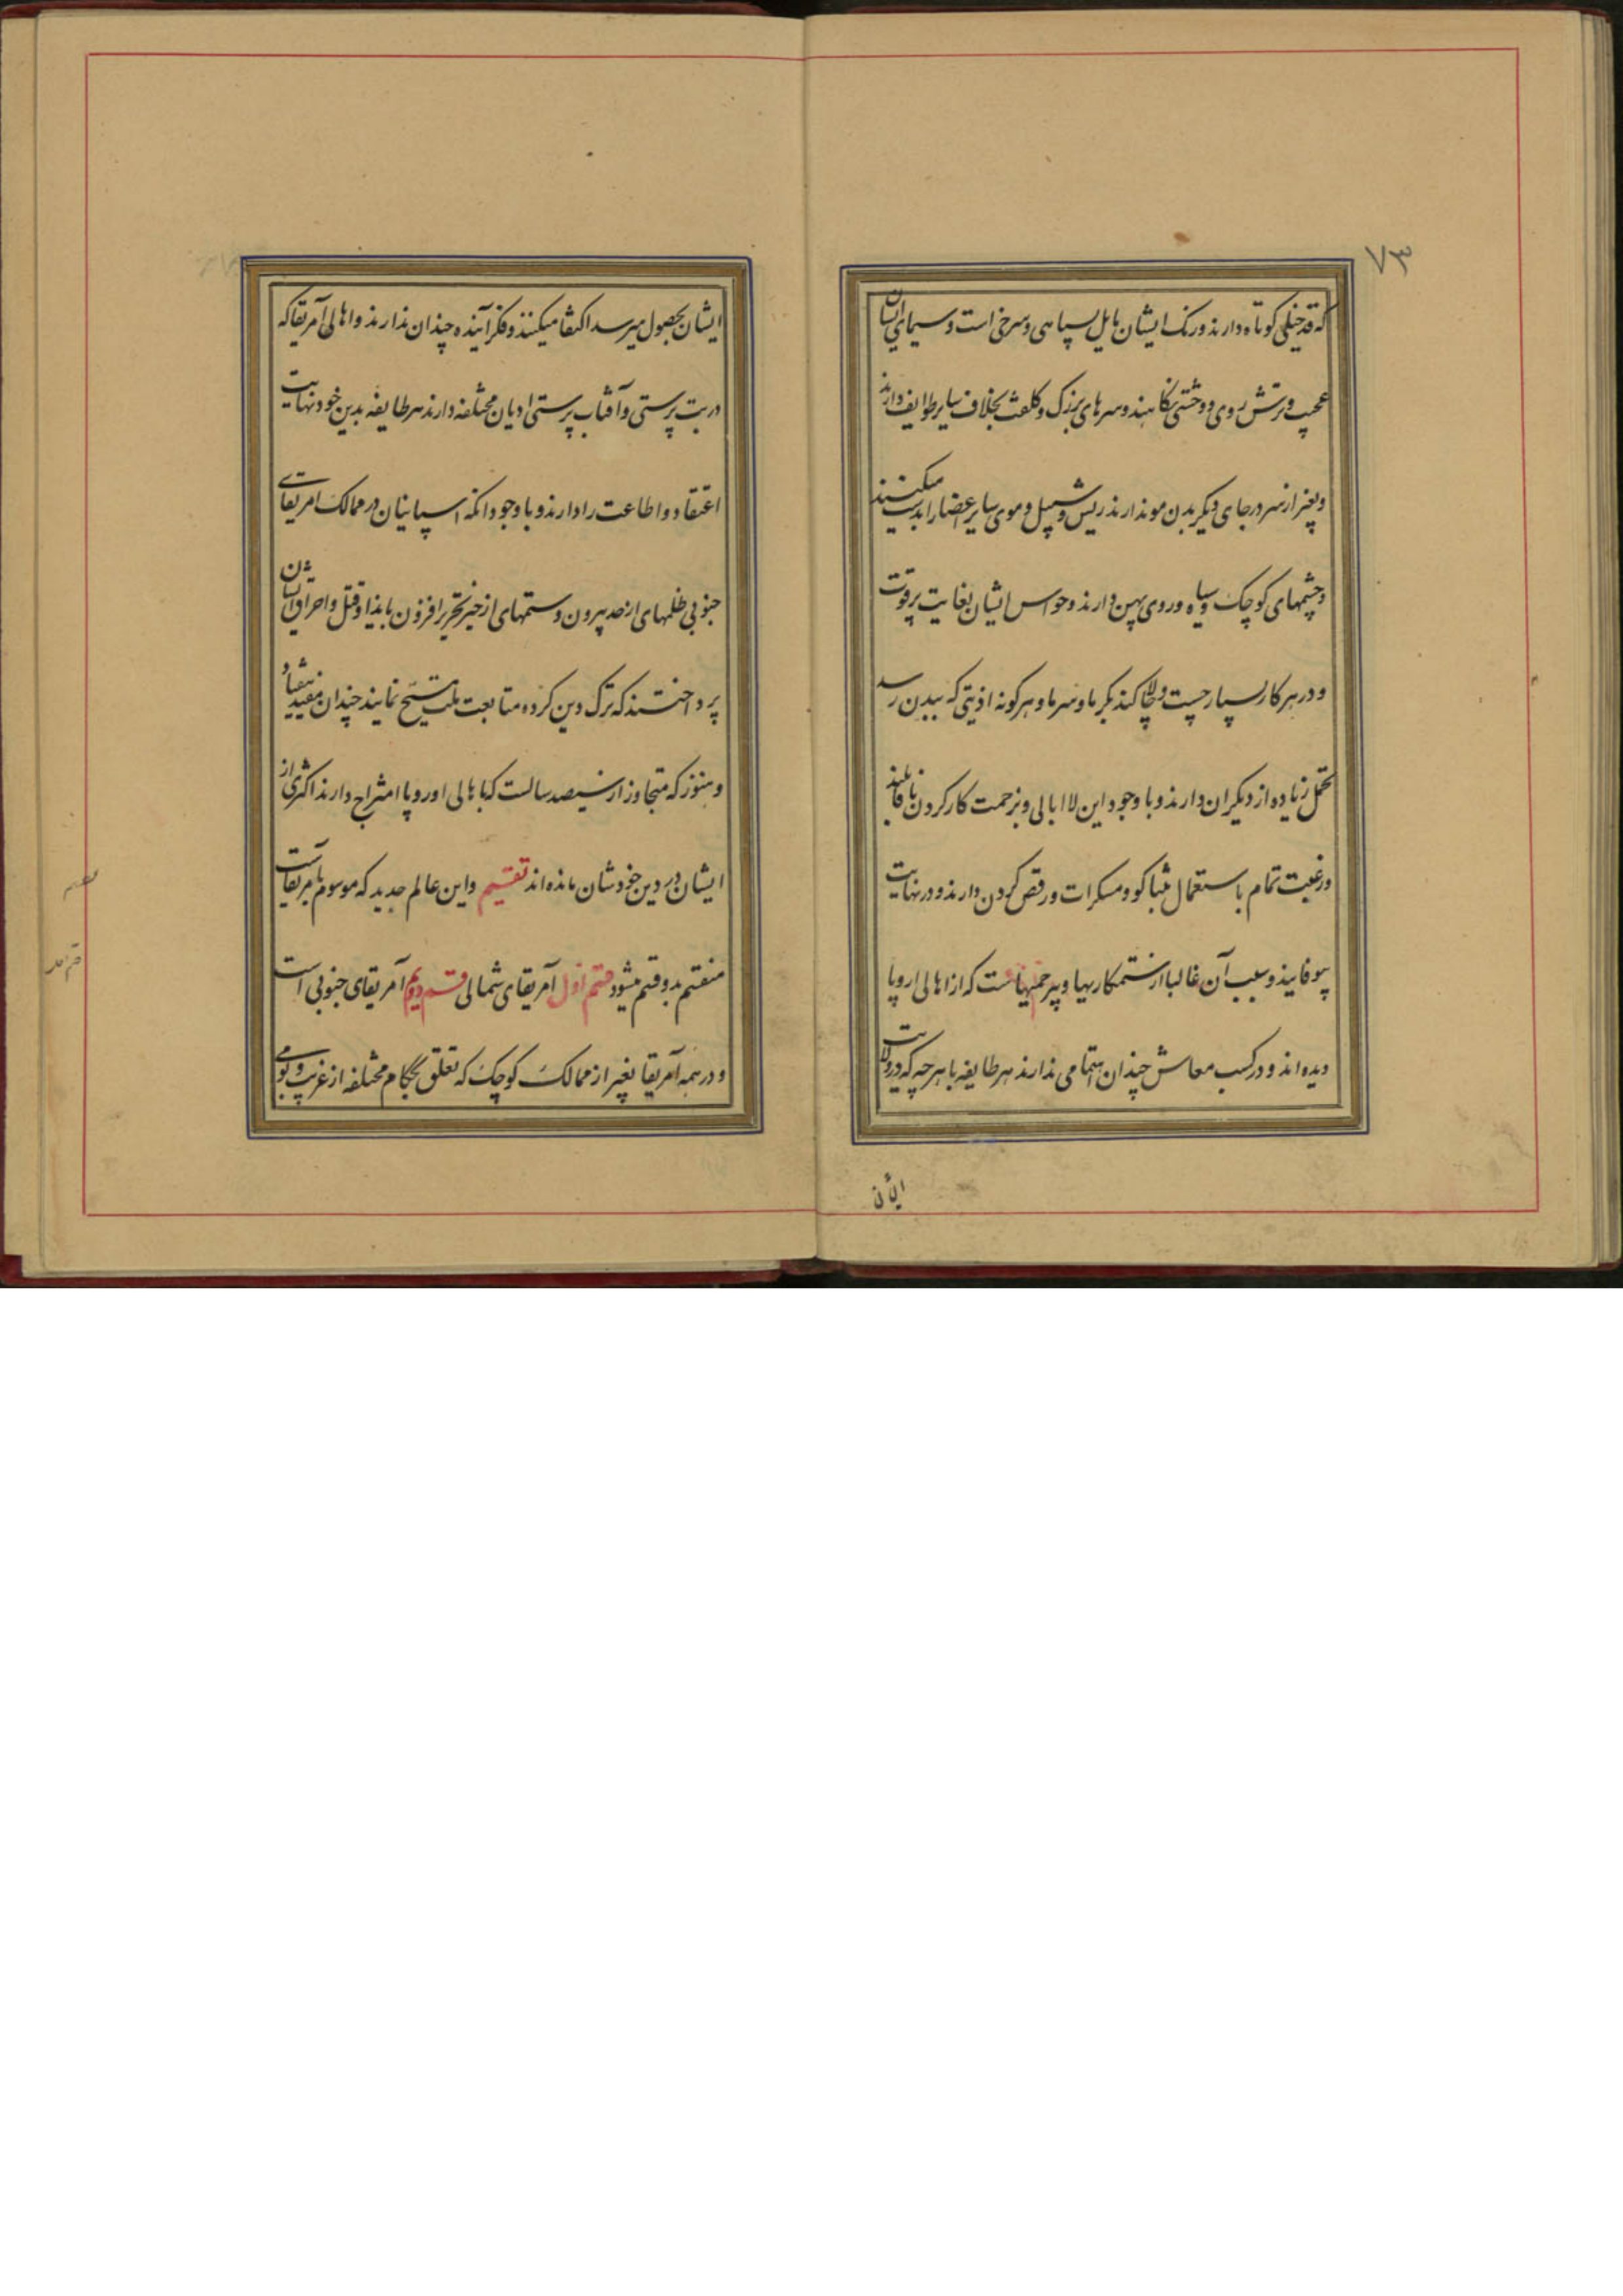 ۷۳
که قد خیلی کوتاه دارند و رنک ایشان مایل بسیاهی و سرخی است و سیمای ایشان
عجیب و ترش روی و وحشتی نکاهند و سرهای بزرک و کلفت بخلاف سایر طوایف دارند
و بغیر از سر در جای دیکر بدن مو ندارند ریش و سبیل و موی سایر اعضا را بدست میکنند
و چشمهای کوچک و سیاه و روی پهن دارند و حواس ایشان بغایت پرقوت
و در هر کار بسیار چست و چالاکند بکرما و سرما و هرکونه اذیتی که ببدن رسد
تحمل زیاده از دیکران دارند و با وجود این لاابالی و بزحمت کار کردن ناقابلند
و رغبت تمام باستعمال تنباکو و مسکرات و رقص کردن دارند و در نهایت
بیوفایند و سبب آن غالبا از ستمکاریها و بیرحمیهاست که از اهالی اروپا
دیده اند و در کسب معاش چندان اهتمامی ندارند هر طایفه با هرچه که در ولایت
ایشان
ایشان بحصول میرسد اکتفا میکنند و فکر آینده چندان ندارند و اهالی آمریقا که
در بت پرستی و آفتاب پرستی ادیان مختلفه دارند هر طایفه بدین خود نهایت
اعتقاد و اطاعت را دارند و با وجود انکه اسپانیان در ممالک امریقای
جنوبی ظلمهای از حد بیرون و ستمهای از حیز تحریر افزون بایذا و قتل و احراق ایشان
پرداختند که ترک دین کرده متابعت ملت مسیح نمایند چندان مفید نیفتاد
و هنوز که متجاوز از سیصد سالست که با اهالی اوروپا امتزاج دارند اکثری از
ایشان در دین خودشان مانده اند تقسیم و این عالم جدید که موسوم بامریقاست
منقسم بدو قسم میشود قسم اول آمریقای شمالی قسم دویم آمریقای جنوبی است
و در همه آمریقا بغیر از ممالک کوچک که تعلق بحکام مختلفه از غریب و بومی